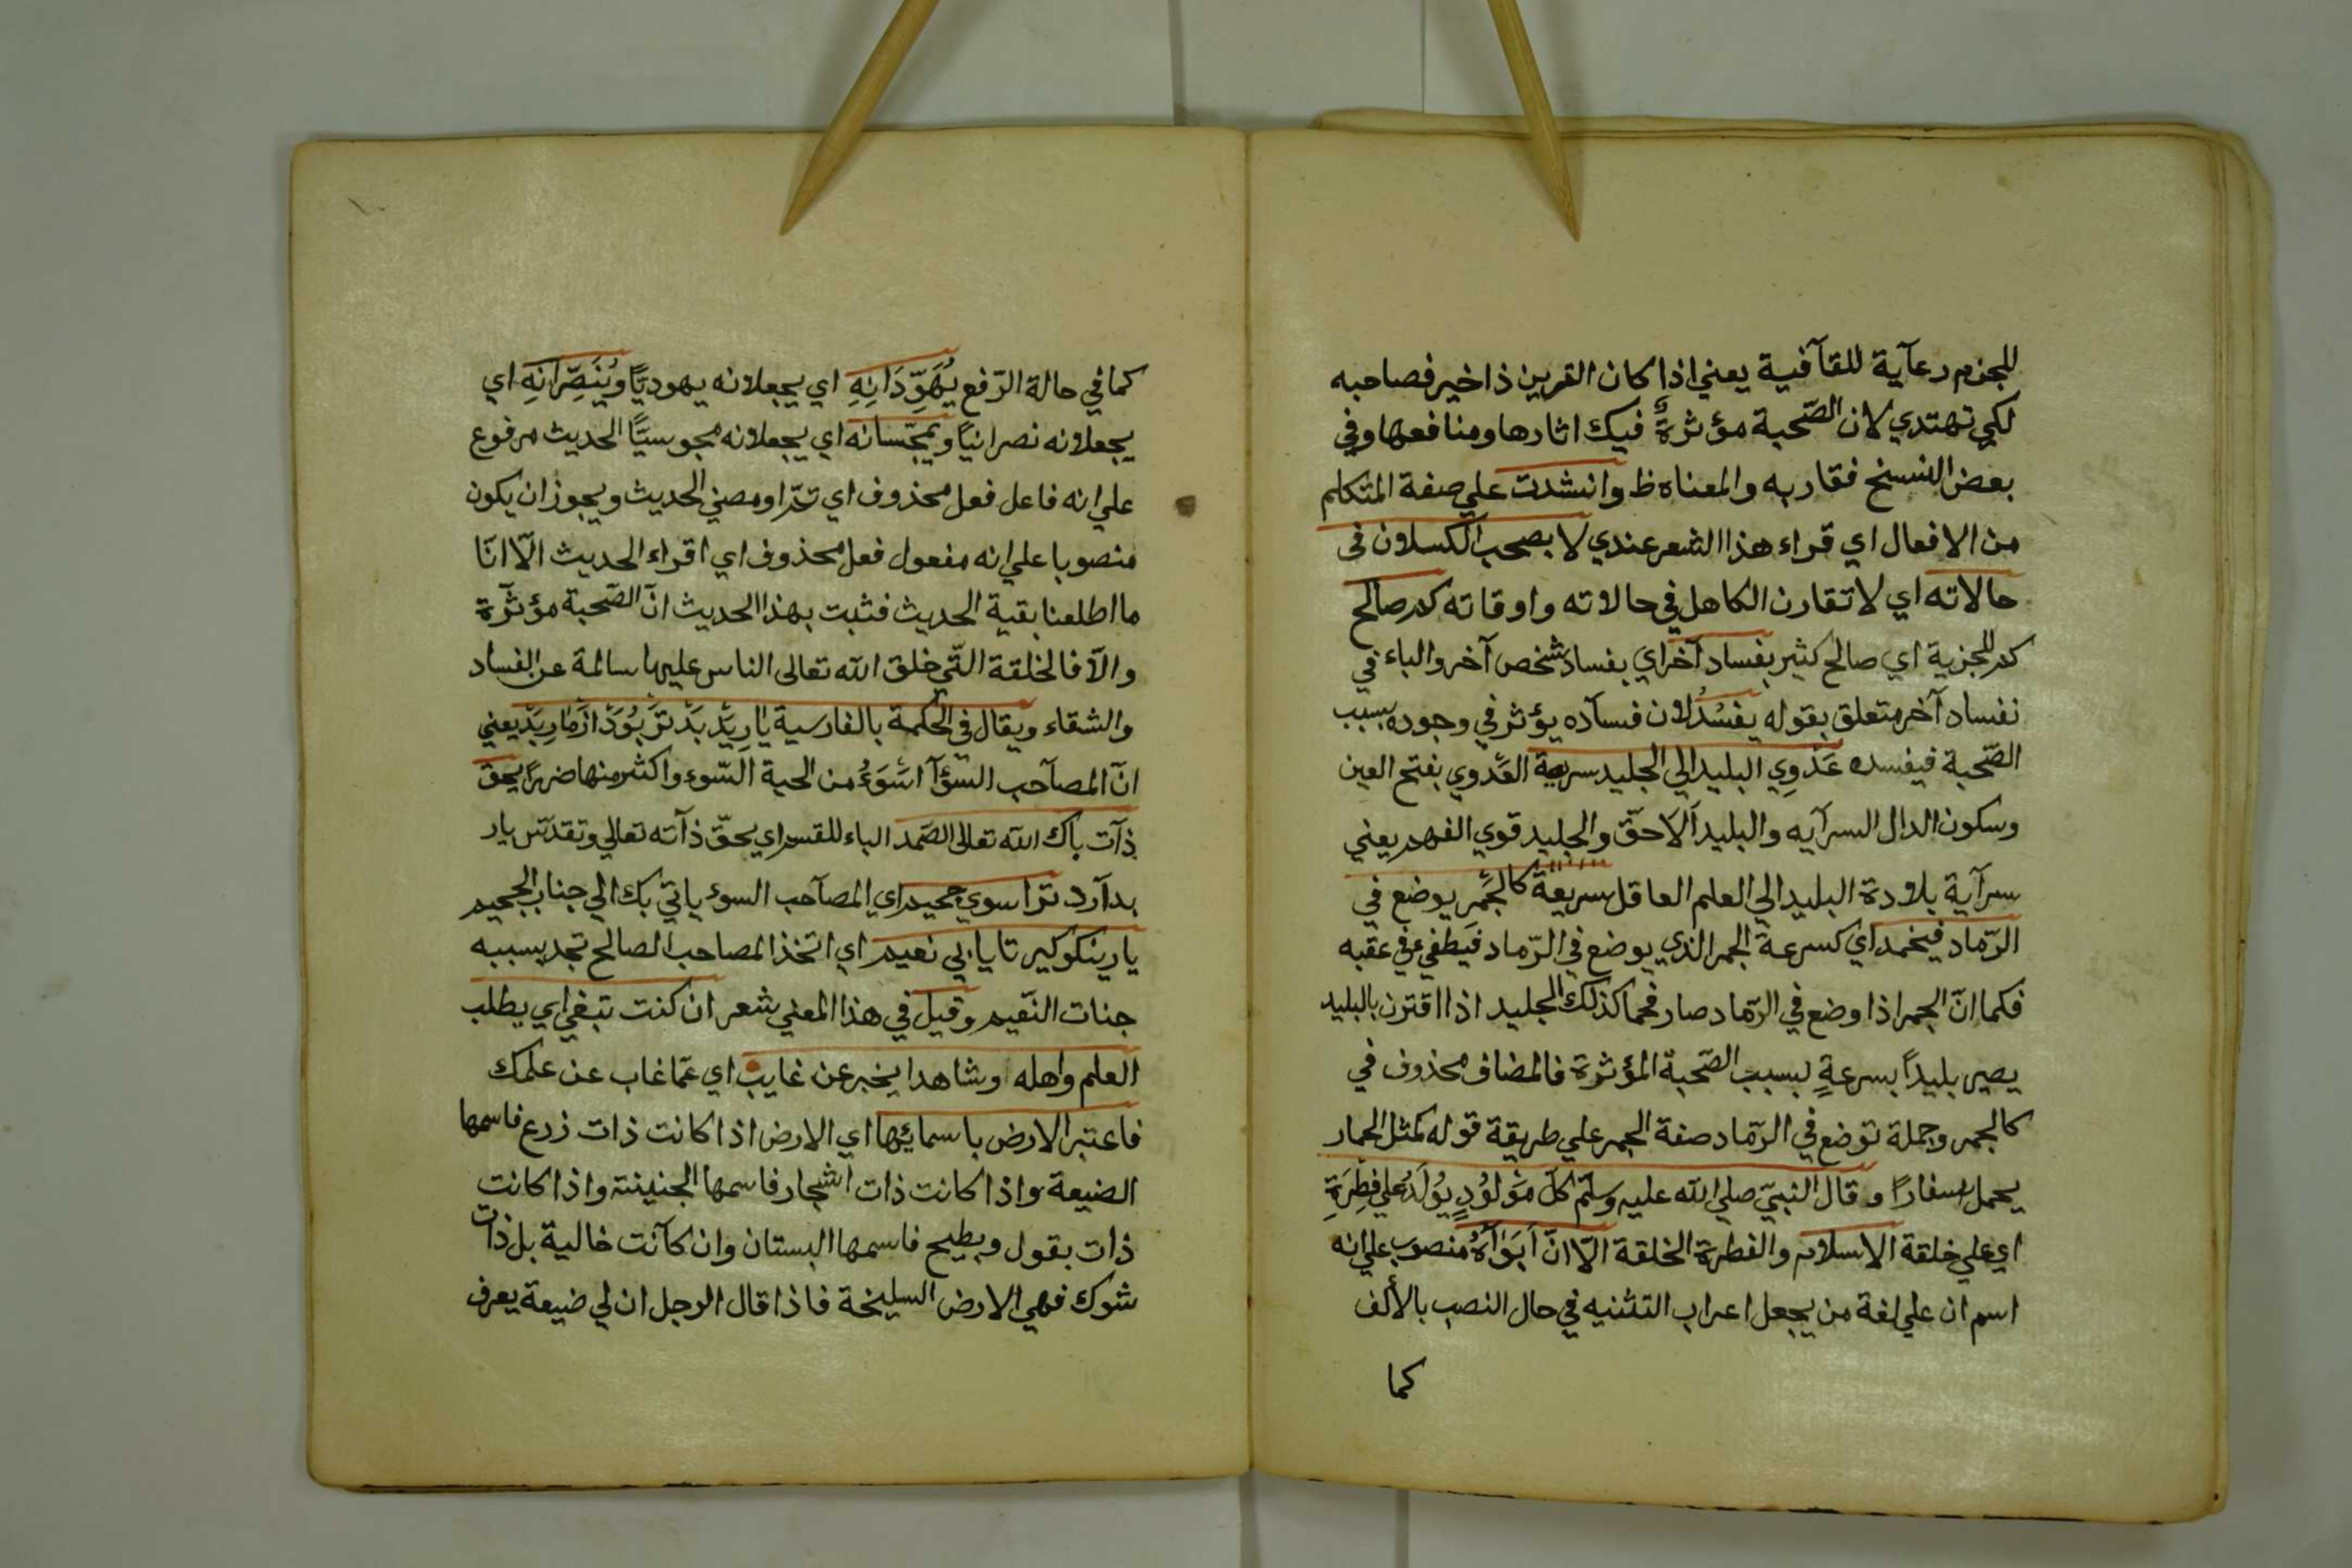 للجزم رعآية للقآفية يعني اذا كان القرين ذا خير فصاحبه
لكي تهتدي لان الصّحبة مؤثرةٌ فيك اثارها ومنافعها وفي
بعض النسخ فقاربه والمعناه ظ وانشدت علي صفة المتكلم
من الافعال اي قراء هذا الشعر عندي لا بصحب الكسلان في
حالاته اي لا تقارن الكاهل في حالاته واوقاته كم صالح
كم للجزية اي صالح كثير بفساد آخر اي بفساد شخص آخر والباء في
نفساد آخر متعلق بقوله يفسُدُ لان فسآده يؤثر في وجوده بسبب
الصّحبة فيفسده عَدْوِي البليد الي الجليد سريعة العَدوي بفتح العين
وسكون الدال السرآيه والبليد اَلاَحقّ والجليد قوي الفهم يعني
سرآية بلادة البليد الي العلم العاقل سريعة كالجَمر يوضع في
الرّماد فيخمد اي كسرعة الجمر الذي يوضع في الرّماد فيَطفي في عقبه
فكما انّ الجمر اذا وضع في الرّماد صار فحما كذلك الجليد اذا اقترن بالبليد
يصير بليداً بسرعةٍ بسبب الصّحبة المؤثرة فالمضاف محذوف في
كالجمر وجملة توضع في الرّماد صفة الجمر علي طريقة قوله كمثل الحمار
يحمل اسفارًا وقال النبيّ صلي الله عليه وسلّم كلّ مَوْلُوْدٍ يُوْلَدُ علي فِطْرَةِ
اي علي خلقة الاسلام والفطرة الخلقة الّا انّ اَبَوَاَهُ منصوب علي انه
اسم ان علي لغة من يجعل اعراب التثنيه في حال النصب بالألف
كما
كما في حالة الرّفع يُهَوِّدَانِهِ اي يجعلانه يهوديًّا ويُنَصِّرانِهِ اي
يجعلانه نصرانيّاً ويمجّسانه اي يجعلانه مجوسيًّا الحديث مرفوع
علي انه فاعل فعل محذوف اي تمّ او مضي الحديث ويجوز ان يكون
منصوبا علي انه مفعول فعل محذوف اي اقراء الحديث الّا انّا
ما اطلعنا بقية الحديث فثبت بهذا الحديث انّ الصّحبة مؤثّرة
والّا فالخلقة الّتي خلق الله تعالى الناس عليها سالمة عن الفساد
والشقاء ويقال في الحكمة بالفارسية يارِ بَدْ بَدْتَرْ بُوَدْ اَزْ مارِ بَدْ يعني
انّ المصآحب السّؤآ اَسْوَءُ من الحية السّوء واكثر منها ضررًا يحقّ
ذآت باك الله تعالى الصّمد الباء للقسم اي بحقّ ذآته تعالي وتقدّس يار
بد آرد ترا سوي جحيم اي المصآحب السوء ياتي بك الي جناب الجحيم
يار نيكو كير تا يابي نعيم اي اتخذ المصاحب الصالح تجد بسببه
جنات النّعيم وقيل في هذا المعني شعر ان كنت تبغي اي يطلب
العلم واهله او شاهدا يخبر عن غايب اي عمّا غاب عن علمك
فاعتبر الارض باسمائها اي الارض اذا كانت ذات زرع فاسمها
الضيعة واذا كانت ذات اشجار فاسمها الجنينة واذا كانت
ذات بقول وبطيح فاسمها البستان وان كآنت خالية بل ذات
شوك فهي الارض السليخة فاذا قال الرجل ان لي ضيعة يعرف